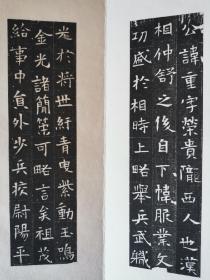 公諱重字榮貴隴西人也漢
相仲舒之後自下帷服業文
功盛於相時上略舉兵武軄
光於將世紆青曳紫動玉鳴
金光諸簡策可略言矣祖茂
給事中員外步兵挍尉陽平